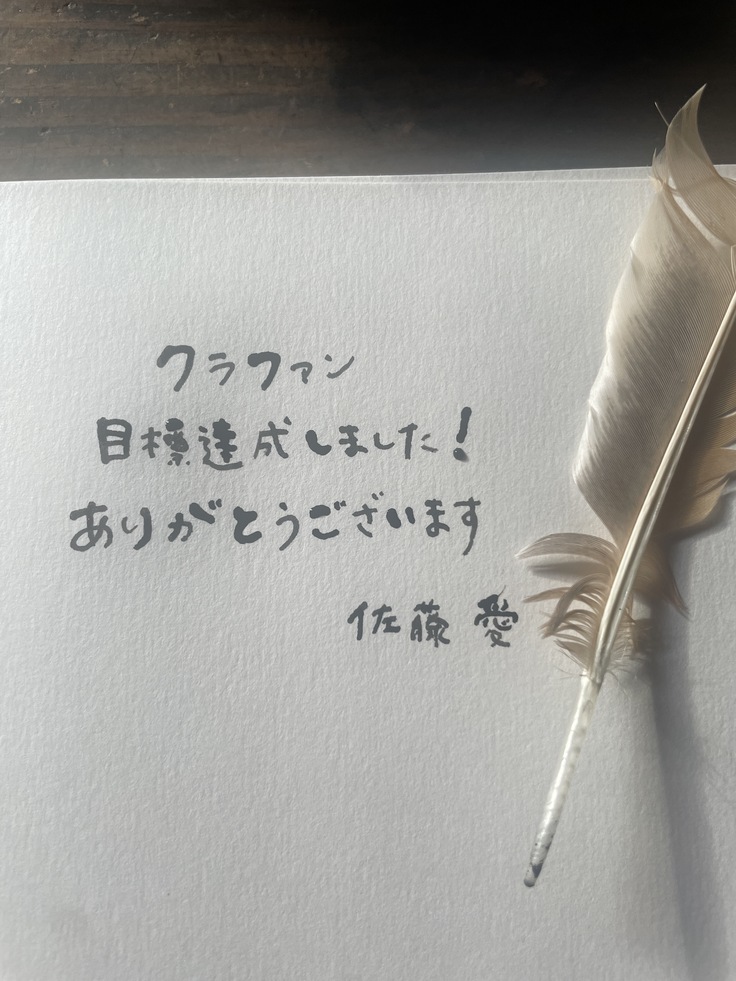 クラファン
目標達成しました!
ありがとうございます
佐藤 愛